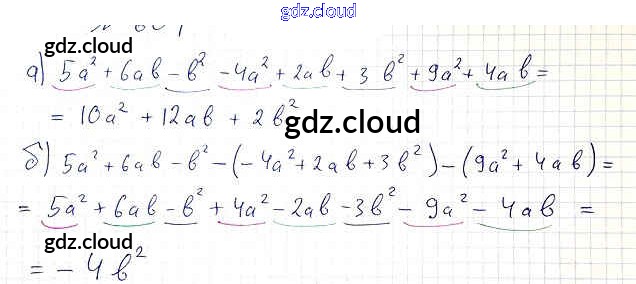 gdz.cloud
gdz.cloud
а) 5a² + 6ab - b² - 4a² + 2ab + 3b² + 9a² + 4ab =
= 10a² + 12ab + 2b²
gdz.cloud
б) 5a² + 6ab - b² - (-4a² + 2ab + 3b²) - (9a² + 4ab) =
gdz.cloud
= 5a² + 6ab - b² + 4a² - 2ab - 3b² - 9a² - 4ab =
gdz.cloud
= - 4b²
gdz.cloud